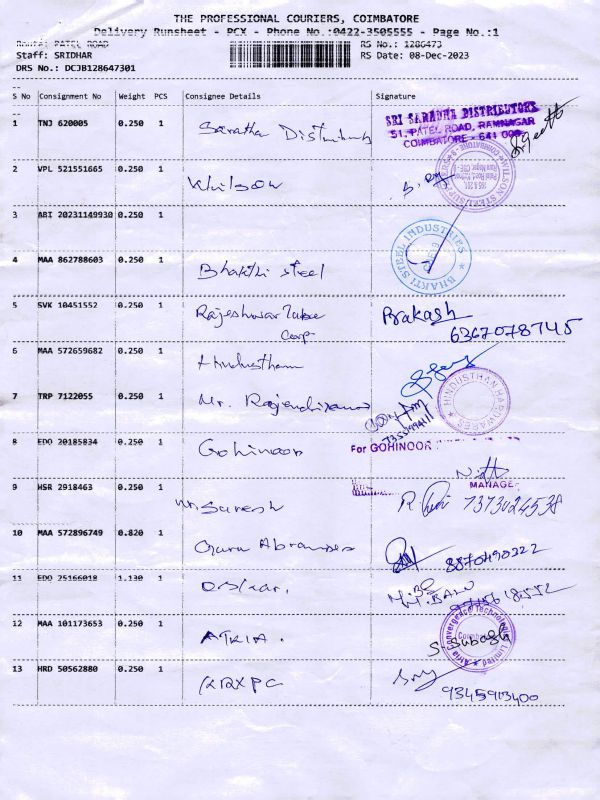 THE PROFESSIONAL COURIERS, COIMBATORE
Delivery Runsheet - PCX - Phone No.:0422-3505555 - Page No.:1
Route: PATEL ROAD
RS No.: 1286473
Staff: SRIDHAR
RS Date: 08-Dec-2023
DRS No.: DCJB128647301
S No Consignment No Weight PCS Consignee Details Signature
1 TNJ 620005 0.250 1 Saratha
SRI SARADHA DISTRIBUTORS
51, PATEL ROAD, RAMNAGAR
COIMBATORE - 641 009
2 VPL 521551665 0.250 1 Wilson
WILSON STEEL SUPPLIERS
3 ABI 20231149930 0.250 1
4 MAA 862788603 0.250 1 Bhakthi steel
BHAKTI STEEL INDUSTRIES
5 SVK 10451552 0.250 1 Rajeshwar Tube Corp
Prakash
6367078745
6 MAA 572659682 0.250 1 Hindusthan
HINDUSTHAN HARDWARES
7 TRP 7122055 0.250 1 Mr. Rajendiran
8 EDO 20185834 0.250 1 Gohinoor
For GOHINOOR
MANAGER
9 HSR 2918463 0.250 1 Mr Suresh
7373024538
10 MAA 572896749 0.820 1 Guru Abrasives
8870490222
11 EDO 25166018 1.130 1
12 MAA 101173653 0.250 1 ATRIA.
S. Subash
Atria Convergence Technologies Limited
13 HRD 50562880 0.250 1
9345913400